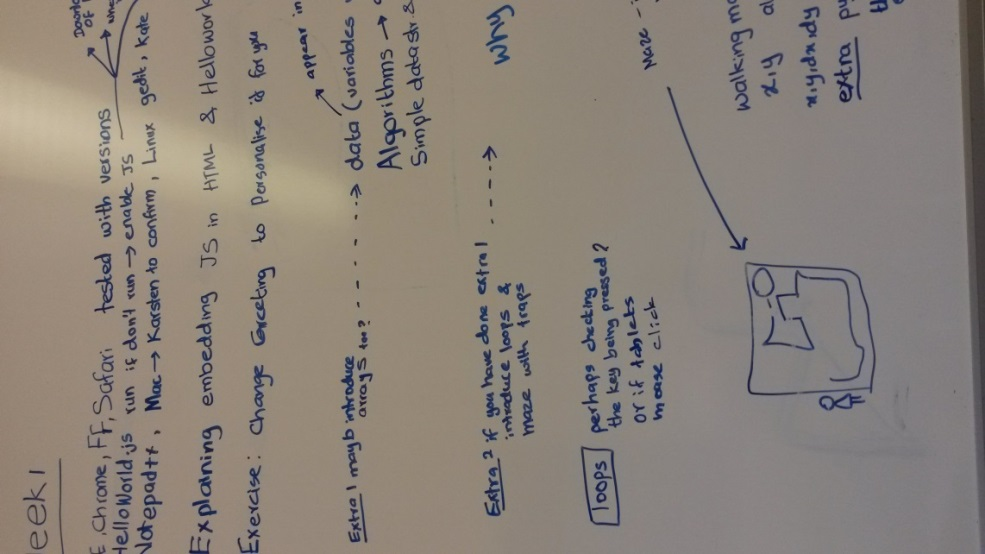 eek 1
E, Chrome, FF, Safari tested with versions
HelloWorld.js run if don't run → enable JS
Notepad++, Mac → Karsten to confirm, Linux gedit, Kate
Explaining embedding JS in HTML & Hellowork
Exercise: Change Greeting to personalise it for you
appear in
Extra 1 mayb introduce
arrays too? -----> data (variables
Algorithms →
Simple datastr &
Extra 2 if you have done extra 1 ----->
introduce loops &
maze with traps
why
loops
perhaps checking
the key being pressed?
or if tablets
mouse click
Maze -
walking ma
x,y a
x,y,dx,dy
extra pu
th